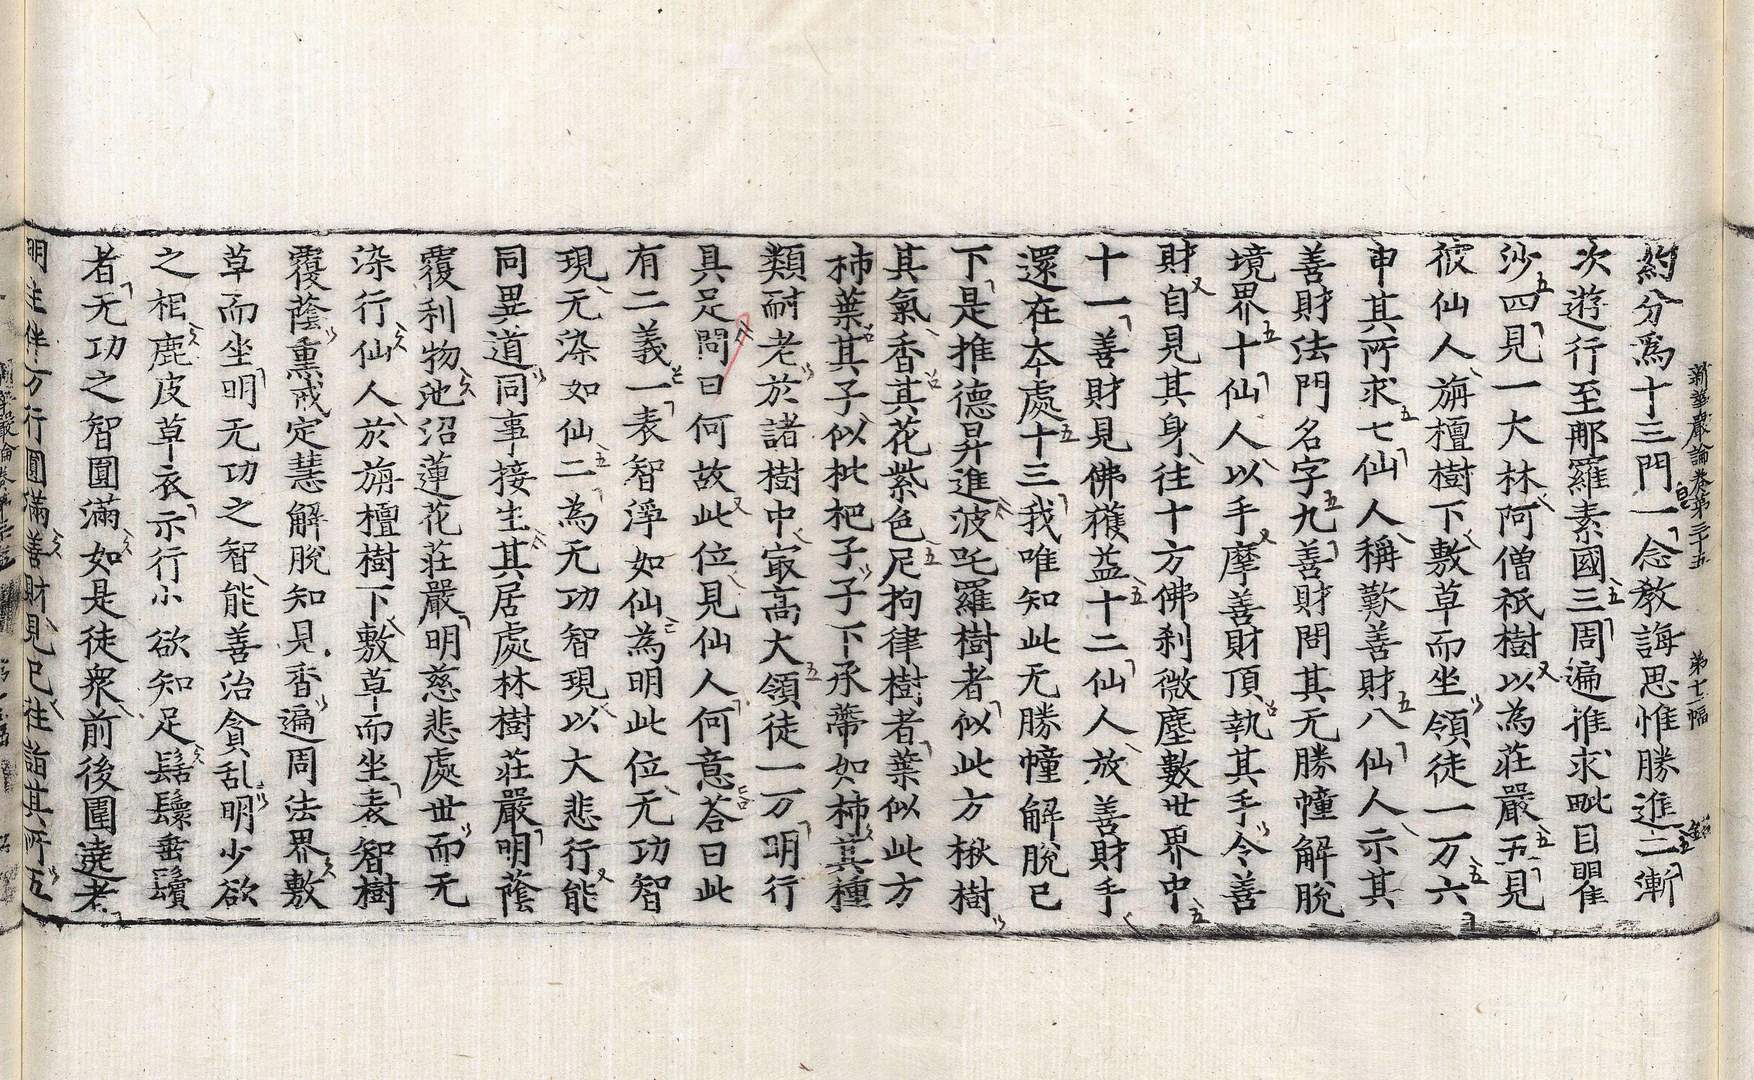 新華嚴論卷第三十五 第十一幅
約分爲十三門一念教誨思惟勝進二漸
次遊行至那羅素國三周遍推求毗目瞿
沙四見一大林阿僧祇樹以為莊嚴五見
彼仙人旃檀樹下敷草而坐領徒一万六
申其所求七仙人稱歎善財八仙人示其
善財法門名字九善財問其无勝幢解脫
境界十仙人以手摩善財頂執其手令善
財自見其身往十方佛刹微塵數世界中
十一善財見佛獲益十二仙人放善財手
還在本處十三我唯知此无勝幢解脫已
下是推德昇進波吒羅樹者似此方楸樹
其氣香其花紫色尼拘律樹者葉似此方
柿葉其子似枇杷子子下承蔕如柿其種
類耐老於諸樹中㝡高大領徒一万明行
具足問曰何故此位見仙人何意荅曰此
有二義一表智淨如仙為明此位无功智
現无染如仙二為无功智現以大悲行能
同異道同事接生其居處林樹莊嚴明蔭
覆利物池沼蓮花莊嚴明慈悲處世而无
染行仙人於旃檀樹下敷草而坐表智樹
覆蔭熏戒定慧解脫知見香遍周法界敷
草而坐明无功之智能善治貪乱明少欲
之相鹿皮草衣示行小欲知足髻鬟垂鬢
者无功之智圓滿如是徒衆前後圍遶者
明主伴万行圓滿善財見已往詣其所五